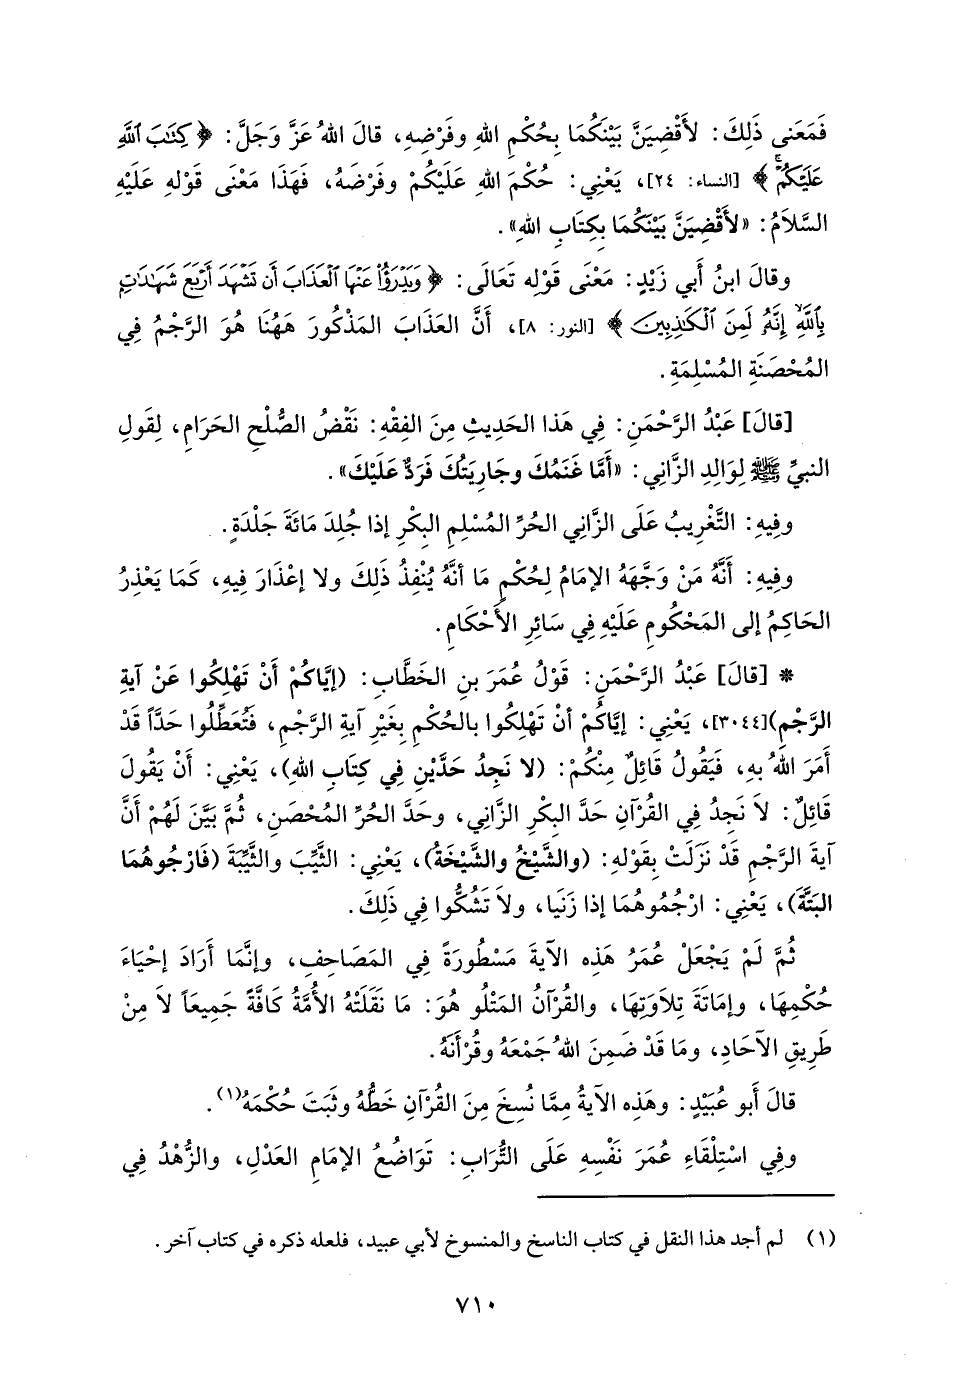 فَمَعَنى ذَلِكَ: لأَقْضِيَنَّ بَيْنَكُمَا بِحُكْمِ اللهِ وفَرْضِهِ، قالَ اللهُ عَزَّ وَجَلَّ: ﴿كِتَٰبَ ٱللَّهِ
عَلَيْكُمْۚ﴾ [النساء: ٢٤]، يَعْنِي: حُكْمَ اللهِ عَلَيْكُمْ وفَرْضَهُ، فَهَذَا مَعْنَى قَوْلِهِ عَلَيْهِ
السَّلاَمُ: «لأَقْضِيَنَّ بَيْنَكُمَا بِكِتَابِ اللهِ».
وقالَ ابنُ أَبي زَيْدٍ: مَعْنَى قَوْلِه تَعَالَى: ﴿وَيَدْرَؤُا۟ عَنْهَا ٱلْعَذَابَ أَن تَشْهَدَ أَرْبَعَ شَهَٰدَٰتٍۭ
بِٱللَّهِۙ إِنَّهُۥ لَمِنَ ٱلْكَٰذِبِينَ﴾ [النور: ٨]، أَنَّ العَذَابَ المَذْكُورَ هَهُنَا هُوَ الرَّجْمُ فِي
المُحْصَنَةِ المُسْلِمَةِ.
[قالَ] عَبْدُ الرَّحْمَنِ: فِي هَذَا الحَدِيثِ مِنَ الفِقْهِ: نَقْضُ الصُّلْحِ الحَرَامِ، لِقَولِ
النبيِّ ﷺ لِوَالِدِ الزَّانِي: «أَمَّا غَنَمُكَ وجَارِيَتُكَ فَرَدٌّ عَلَيْكَ».
وفِيهِ: التَّغْرِيبُ عَلَى الزَّانِي الحُرِّ المُسْلِمِ البِكْرِ إذا جُلِدَ مَائَةَ جَلْدَةٍ.
وفِيهِ: أَنَّهُ مَنْ وَجَّهَهُ الإمَامُ لِحُكْمٍ مَا أنَّهُ يُنْفِذُ ذَلِكَ ولا إعْذَارَ فِيهِ، كَمَا يَعْذِرُ
الحَاكِمُ إلى المَحْكُومِ عَلَيْهِ فِي سَائِرِ الأَحْكَامِ.
* [قالَ] عَبْدُ الرَّحْمَنِ: قَوْلُ عُمَرَ بنِ الخَطَّابِ: (إيَّاكُمْ أَنْ تَهْلِكُوا عَنْ آيةِ
الرَّجْمِ)[٣٠٤٤]، يَعْنِي: إيَّاكُمْ أنْ تَهْلِكُوا بالحُكْمِ بِغَيْرِ آيةِ الرَّجْمِ، فَتُعَطِّلُوا حَدَّاً قَدْ
أَمَرَ اللهُ بهِ، فَيَقُولُ قَائِلٌ مِنْكُمْ: (لا نَجِدُ حَدَّيْنِ فِي كِتَابِ اللهِ)، يَعْنِي: أَنْ يَقُولَ
قَائِلٌ: لاَ نَجِدُ فِي القُرْآنِ حَدَّ البِكْرِ الزَّانِي، وحَدَّ الحُرِّ المُحْصَنِ، ثُمَّ بَيَّنَ لَهُمْ أنَّ
آيةَ الرَّجْمِ قَدْ نَزَلَتْ بِقَوْلِهِ: (والشَّيْخُ والشَّيْخَةُ)، يَعْنِي: الثَّيِّبَ والثَّيِّبَةَ (فَارْجُوهُمَا
البَتَّةَ)، يَعْنِي: ارْجُمُوهُمَا إذا زَنَيَا، ولاَ تَشُكُّوا فِي ذَلِكَ.
ثُمَّ لَمْ يَجْعَلْ عُمَرُ هَذِه الآيةَ مَسْطُورَةً فِي المَصَاحِفِ، وإنَّمَا أَرَادَ إحْيَاءَ
حُكْمِهَا، وإمَاتَةَ تِلاَوَتِهَا، والقُرْآنُ المَتْلُو هُوَ: مَا نَقَلَتْهُ الأُمَّةُ كَافَّةً جَمِيعَاً لاَ مِنْ
طَرِيقِ الآحَادِ، ومَا قَدْ ضَمِنَ اللهُ جَمْعَهُ وقُرْآنَهُ.
قالَ أَبو عُبَيْدٍ: وهَذِه الآيةُ مِمَّا نُسِخَ مِنَ القُرْآنِ خَطُّهُ وثَبَتَ حُكْمَهُ(١).
وفِي اسْتِلْقَاءِ عُمَرَ نَفْسِهِ عَلَى التُّرَابِ: تَوَاضُعُ الإمَامِ العَدْلِ، والزُّهْدُ فِي
(١) لم أجد هذا النقل في كتاب الناسخ والمنسوخ لأبي عبيد، فلعله ذكره في كتاب آخر.
٧١٠